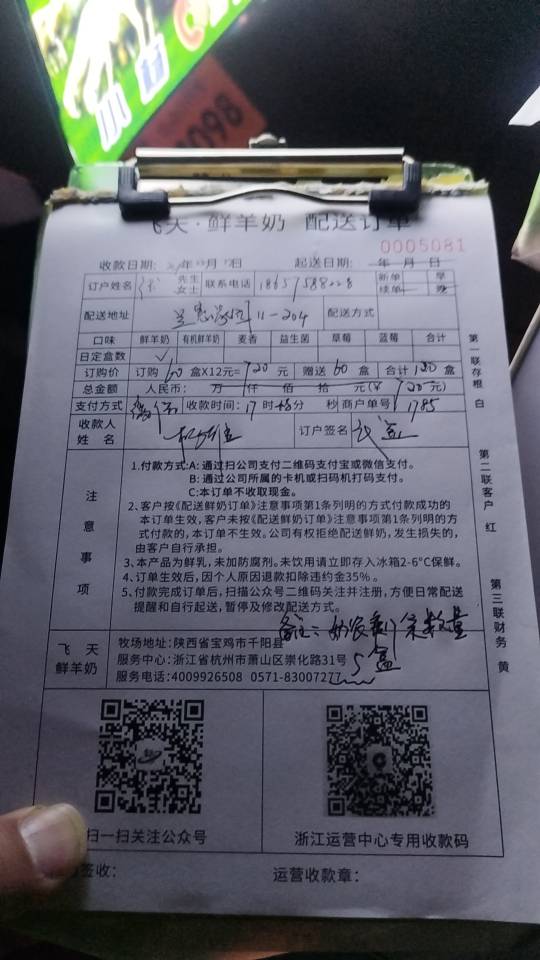 098
飞天·鲜羊奶 配送订单
0005081
收款日期: 年 月 日 起送日期: 年 月 日
订户姓名 先生 女士 联系电话 新单 续单 早 晚
配送地址 11-204 配送方式
口味 鲜羊奶 有机鲜羊奶 麦香 益生菌 草莓 蓝莓 合计
日定盒数 ✓
订购价 订购 60 盒X12元= 720 元 赠送 60 盒 合计 120 盒
总金额 人民币: 万 仟 佰 拾 元(¥ 720 元)
支付方式 微信 收款时间: 17 时 分 秒 商户单号 1785
收款人姓名 订户签名
注意事项
1.付款方式:A:通过扫公司支付二维码支付宝或微信支付。
B:通过公司所属的卡机或扫码机打码支付。
C:本订单不收取现金。
2、客户按《配送鲜奶订单》注意事项第1条列明的方式付款成功的
本订单生效,客户未按《配送鲜奶订单》注意事项第1条列明的方
式付款的,本订单不生效。公司有权拒绝配送鲜奶,发生损失的,
由客户自行承担。
3、本产品为鲜乳,未加防腐剂。未饮用请立即存入冰箱2-6°C保鲜。
4、订单生效后,因个人原因退款扣除违约金35%。
5、付款完成订单后,扫描公众号二维码关注并注册,方便日常配送
提醒和自行起送,暂停及修改配送方式。
备注: 数量
5盒
飞天鲜羊奶
牧场地址:陕西省宝鸡市千阳县
服务中心:浙江省杭州市萧山区崇化路31号
服务电话:4009926508 0571-83007277
扫一扫关注公众号 浙江运营中心专用收款码
签收: 运营收款章:
第一联存根 白
第二联客户 红
第三联财务 黄